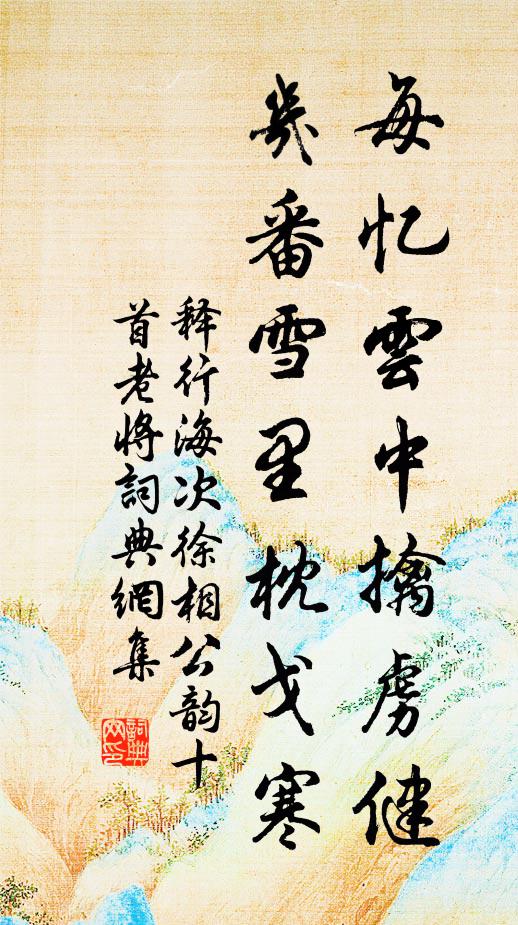 每忆雲中擒虏健
幾番雪里枕戈寒
释行海次徐相公韵十
首老将詞典網集
詞典网印